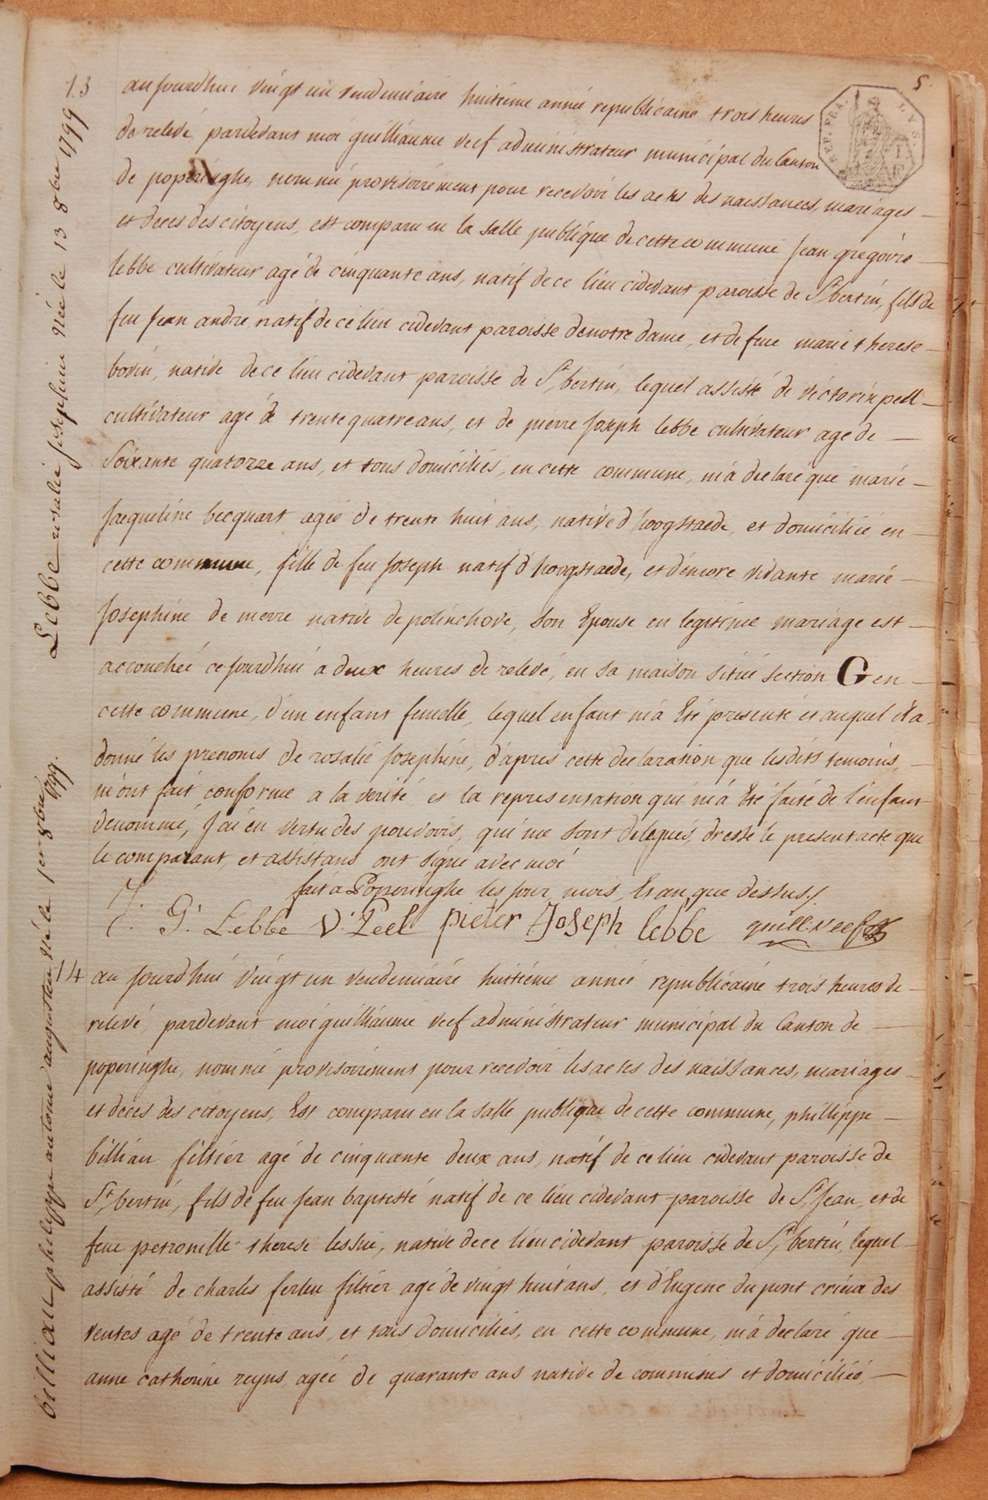 5
13
Lebbe rosalie josephine Née le 13 8bre 1799
aujourdhui vingt un vendemiaire huitieme année republicaine trois heures
de relevé pardevant moi guilliaume veef administrateur municipal du Canton
de poperinghe, nommé provisoirement pour recevoir les actes des naissances, mariages
et deces des citoyens, est comparu en la salle publique de cette commune Jean gregoire
lebbe cultivateur agé de cinquante ans, natif de ce lieu cidevant paroisse de St bertin, fils de
feu Jean andré, natif de ce lieu cidevant paroisse de notre dame, et de feue marie therese
bovin, native de ce lieu cidevant paroisse de St bertin, lequel assisté de victorin pell
cultivateur agé de trente quatre ans, et de pierre Joseph lebbe cultivateur age de
Soixante quatorze ans, et tous domiciliés, en cette commune, m'a declaré que marie
Jacqueline becquart agée de trente huit ans, native d'hoogstaede, et domiciliée en
cette commune, fille de feu Joseph natif d'hoogstaede, et d'encore vivante marie
Josephine de mevre native de polinchove, son Epouse en legitime mariage est
accouchée ce jourdhui a deux heures de relevé, en sa maison située section G en
cette commune, d'un enfant femelle, lequel enfant m'a Eté presenté et auquel Ela
donné les prenoms de rosalie Josephine, d'après cette declaration que lesdits temoins,
m'ont fait conforme a la verité et la representation qui m'a Eté faite de l'enfant
denommé, J'ai en vertu des pouvoirs, qui me sont delegués, dressé le present acte que
le comparant et assistans ont signé avec moi
fait a Poperinghe les jour, mois, & an que dessus.
J. G. Lebbe V. Peel pieter Joseph lebbe guill. veef
14
billiau philippe antoine augustin né le 1er 8bre 1799.
au jourdhui vingt un vendemiaire huitieme année republicaine trois heures de
relevé pardevant moi guilliaume veef administrateur municipal du Canton de
poperinghe, nommé provisoirement pour recevoir les actes des naissances, mariages
et deces des citoyens, Est comparu en la salle publique de cette commune, phillippe
billiau filtier agé de cinquante deux ans, natif de ce lieu cidevant paroisse de
St bertin, fils de feu Jean baptiste natif de ce lieu cidevant paroisse de St Jean, et de
feue petronille therese lessue, native de ce lieu cidevant paroisse de St bertin, lequel
assisté de charles ferlin filtier agé de vingt huit ans, et d'Eugene dupont crieur des
ventes agé de trente ans, et tous domiciliés, en cette commune, m'a declaré que
anne catherine reyns agée de quarante ans native de commines et domiciliée